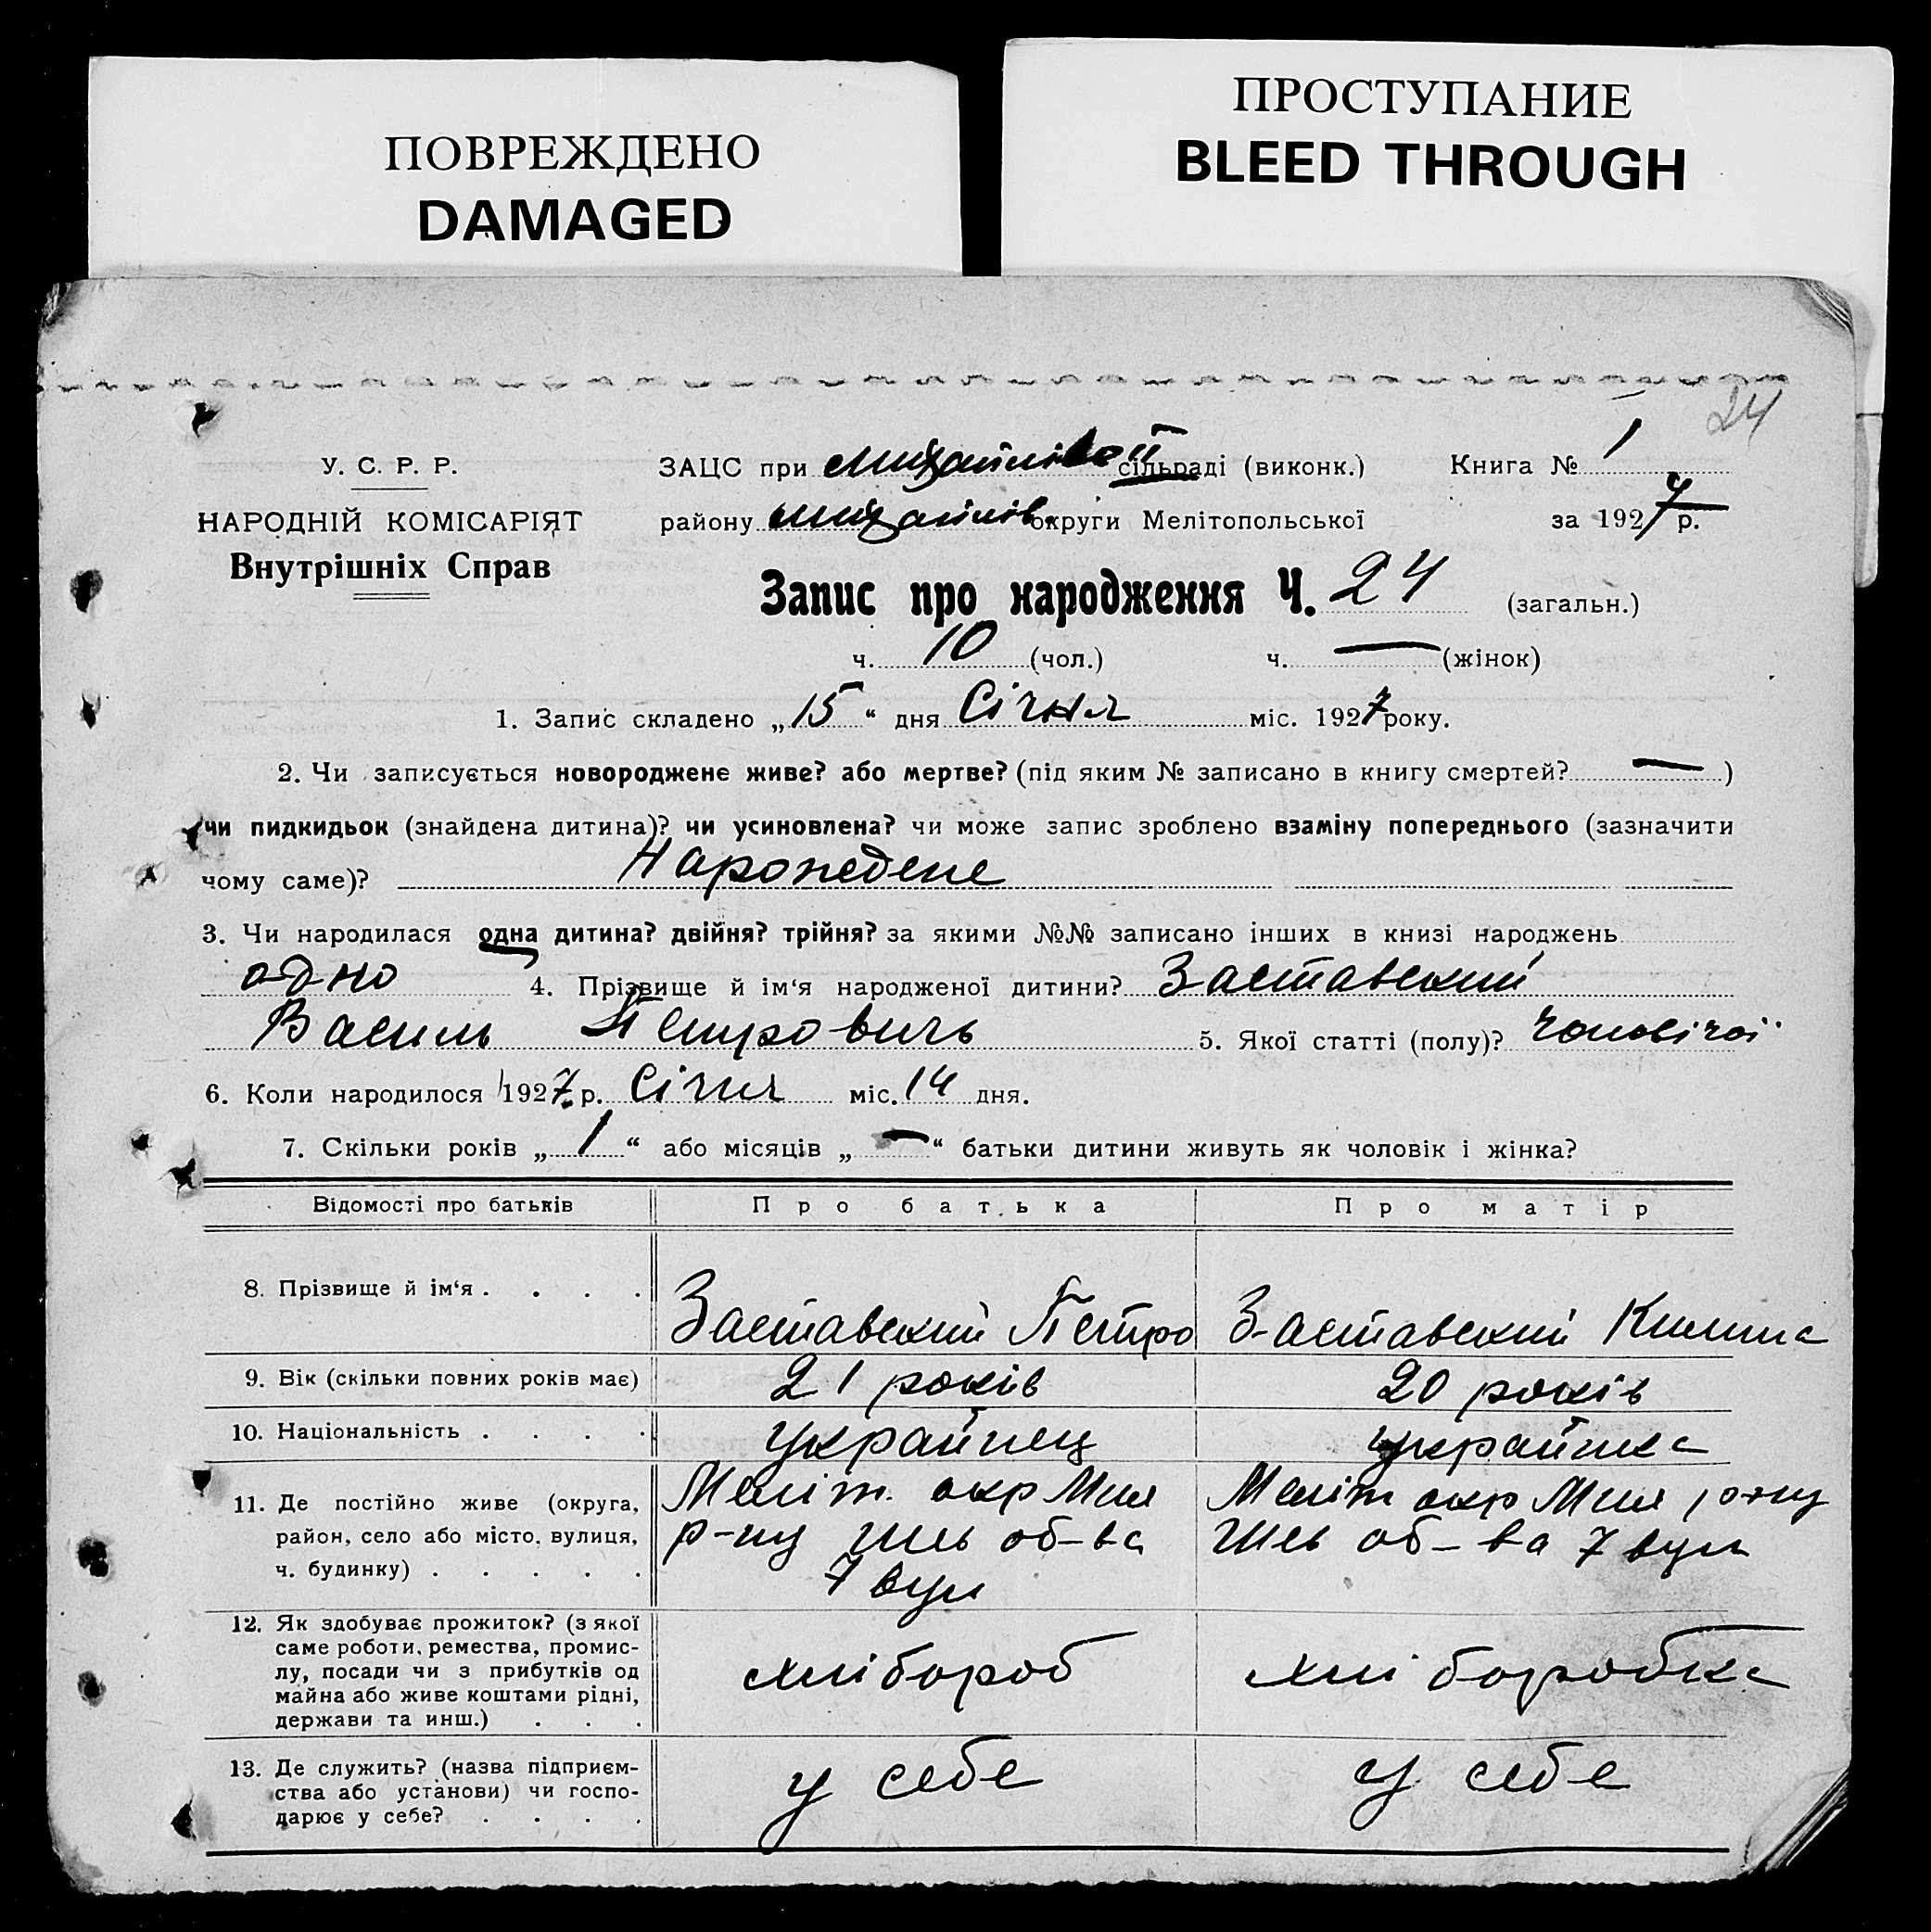 ПОВРЕЖДЕНО
DAMAGED
ПРОСТУПАНИЕ
BLEED THROUGH
24
У. С. Р. Р.
ЗАЦС при Михайлівської сільраді (виконк.) Книга № 1
НАРОДНІЙ КОМІСАРІЯТ
району Михайлів. округи Мелітопольської за 1927 р.
Внутрішніх Справ
Запис про народження Ч. 24 (загальн.)
ч. 10 (чол.) ч. — (жінок)
1. Запис складено „15“ дня Січня міс. 1927 року.
2. Чи записується новороджене живе? або мертве? (під яким № записано в книгу смертей? — )
чи пидкидьок (знайдена дитина)? чи усиновлена? чи може запис зроблено взаміну попереднього (зазначити
чому саме)? Нарожедене
3. Чи народилася одна дитина? двійня? трійня? за якими №№ записано інших в книзі народжень
одно 4. Прізвище й ім‘я народженої дитини? Заставский
Василь Петровичь 5. Якої статті (полу)? Чоловічої
6. Коли народилося 1927 р. Січня міс. 14 дня.
7. Скільки років „1“ або місяців „—“ батьки дитини живуть як чоловік і жінка?
Відомості про батьків Про батька Про матір
8. Прізвище й ім‘я . . . . Заставский Петро Заставский
9. Вік (скільки повних років має) 21 років 20 років
10. Національність . . . . Украйнец украйнка
11. Де постійно живе (округа, Меліт. окр Мих Меліт окр Мих р-ну
район, село або місто, вулиця, р-ну Шев об-ва Шев об-ва 7 вул
ч. будинку) . . . . . 7 вул
12. Як здобуває прожиток? (з якої
саме роботи, ремества, промис-
лу, посади чи з прибутків од хлібороб хліборобка
майна або живе коштами рідні,
держави та инш.) . . .
13. Де служить? (назва підприєм-
ства або установи) чи госпо- у себе у себе
дарює у себе? . . . .